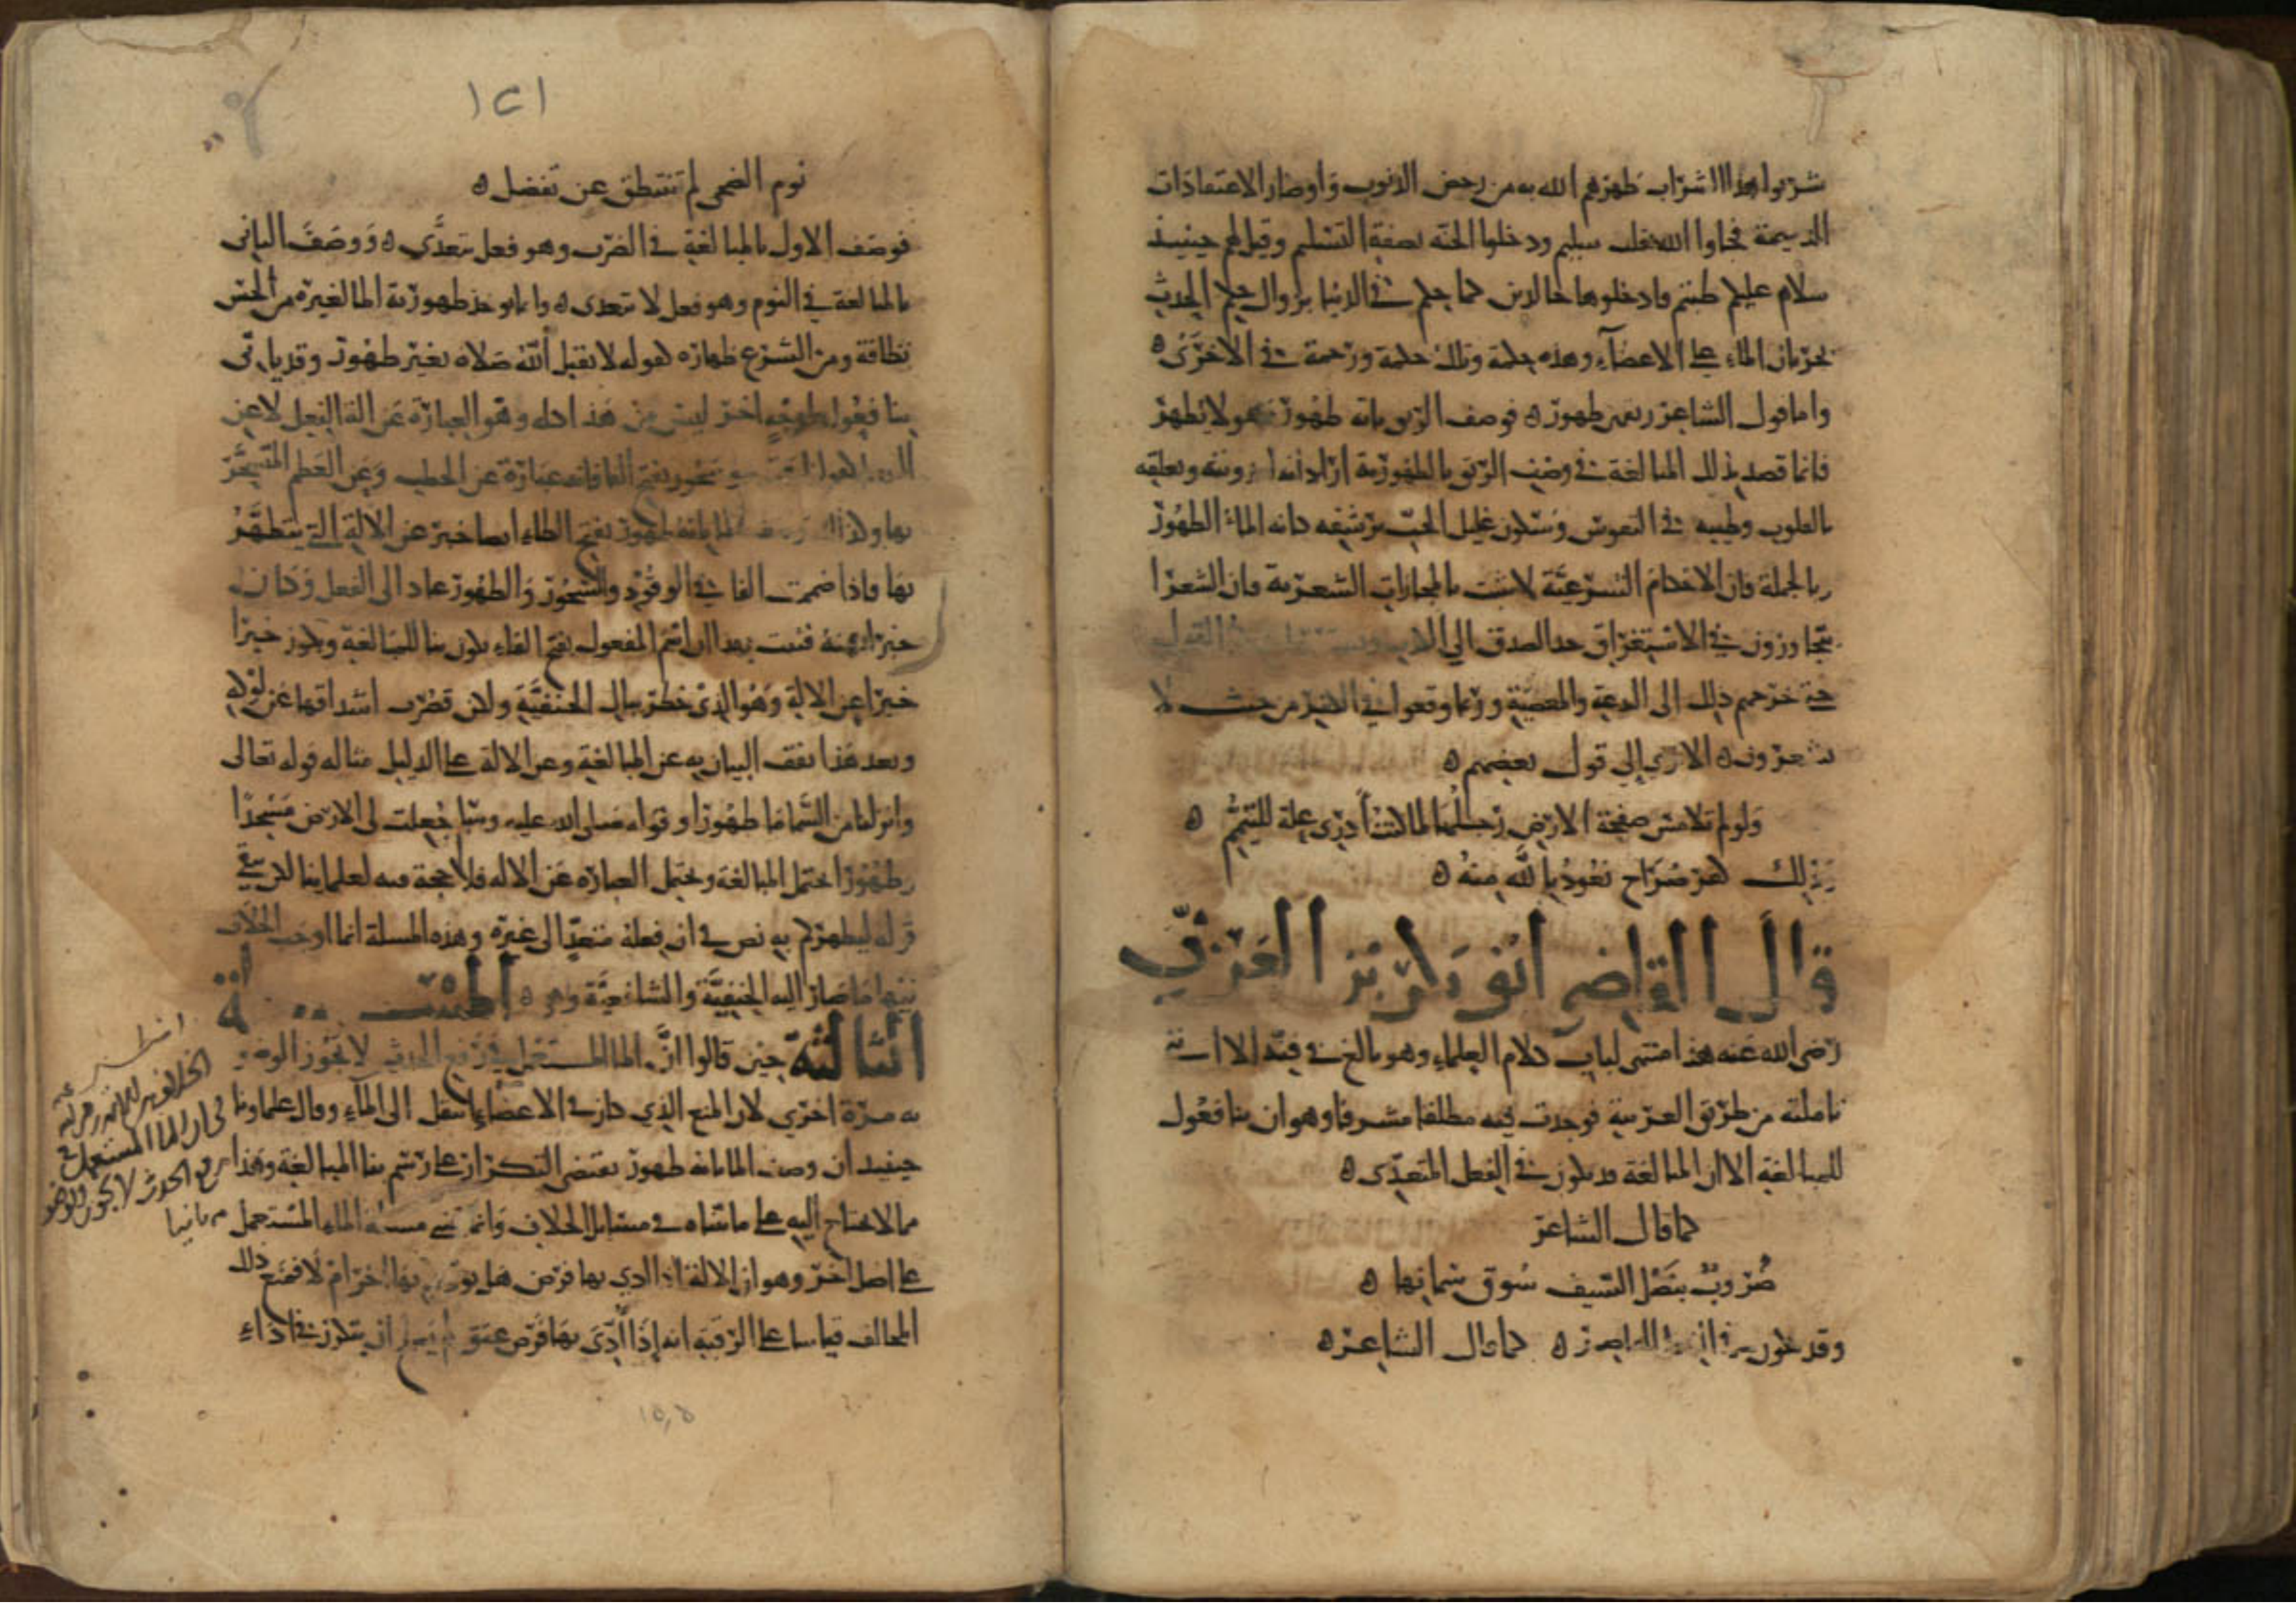 شربوا هذا الشراب طهرهم الله به من رحض الذنوب واوضار الاعتقادات
الذميمة فجاوا الله بقلب سليم ودخلوا الجنة بصفة التسليم وقيل لهم حينيذ
سلام عليكم طبتم فادخلوها خالدين كما حكم في الدنيا بزوال حكم الحدث
بجريان الماء على الاعضاء وهذه حكمة وتلك حكمة ورحمة في الاخرى ه
واما قول الشاعر ريقهن طهور ه فوصف الريق بانه طهور وهو لا يطهر
فانما قصد بذلك المبالغة في وصف الريق بالطهورية اراد انه لعذوبته وتعلقه
بالقلوب وطيبه في النفوس وسكون غليل الحب برشفه كانه الماء الطهور
وبالجملة فان الاحكام الشرعية لا تثبت بالمجازات الشعرية فان الشعرا
يتجاوزون في الاستغراق حد الصدق الى الكذب القول
حتى يخرجهم ذلك الى البدعة والمعصية وربما وقعوا في الكفر من حيث لا
يشعرون ه الا ترى الى قول بعضهم ه
ولو لم تلامس صفحة الارض رجلها لما كنت ادري علة للتيمم ه
وذلك كفر صراح نعوذ بالله منه ه
قال القاضي ابو بكر بن العربي
رضي الله عنه هذا منتهى لباب كلام العلماء وهو بالغ في فنه الا ان
تاملته من طريق العربية فوجدت فيه مطلعا مشرفا وهو ان بنا فعول
للمبالغة الا ان المبالغة قد تكون في الفعل المتعدي ه
كما قال الشاعر
ضروب بنصل السيف سوق سمانها ه
وقد تكون في الفعل القاصر ه كما قال الشاعر ه
١٢١
نوم الضحى لم تنتطق عن تفضل ه
فوصف الاول بالمبالغة في الضرب وهو فعل يتعدى ه ووصف الثاني
بالمبالغة في النوم وهو فعل لا يتعدى ه وانما توخذ طهورية الما لغيره من الحس
نظافة ومن الشرع طهارة كقوله لا يقبل الله صلاة بغير طهور وقد ياتي
بنا فعول لوجه اخر ليس من هذا كله وهو العبارة عن الة الفعل لا عن
الفعل كقولنا وسحور بفتح الفا فانه عبارة عن الحطب وعن الطعم المتسحر
بها وكذلك وصف الما بانه طهور بفتح الطاء ايضا خبر عن الالة التي يتطهر
بها فاذا ضممت الفا في الوقود والسحور والطهور عاد الى الفعل وكان
خبرا عنه فثبت بهذا ان اسم المفعول بفتح الفاء يكون بنا للمبالغة ويكون خبرا
خبرا عن الالة وهو الذي خطر ببال الحنفية ولكن قصرت اشداقها عن لوكه
وبعد هذا يقف البيان به عن المبالغة وعن الالة على الدليل مثاله قوله تعالى
وانزلنا من السما ما طهورا وقوله صلى الله عليه وسلم جعلت لي الارض مسجدا
وطهورا يحتمل المبالغة ويحتمل العبارة عن الالة فلا حجة فيه لعلماينا لكن يبقى
قوله ليطهركم به نص في ان فعله متعد الى غيره وهذه المسلة انما اوجب الخلاف
فيها ما صار اليه الحنفية والشافعية وهي ه المسلة
الثالثة حين قالوا ان الما المستعمل في رفع الحدث لا يجوز الوضوء
به مرة اخرى لان المنع الذي كان في الاعضاء انتقل الى الماء وقال علماونا
حينيذ ان وصف الما بانه طهور يقتضي التكرار على رسم بنا المبالغة وهذا
مما لا يحتاج اليه على ما بيناه في مسايل الخلاف وانما تنبني مسلة الماء المستعمل
على اصل اخر وهو ان الالة اذا ادي بها فرض هل يودى بها اخر ام لا فمنع ذلك
المخالف قياسا على الرقبة انه اذا ادى بها فرض عتق لم يصلح ان يتكرر في اداء
انظر
في ان الما المستعمل في
رفع الحدث لا يجوز الوضوء
به ثانيا